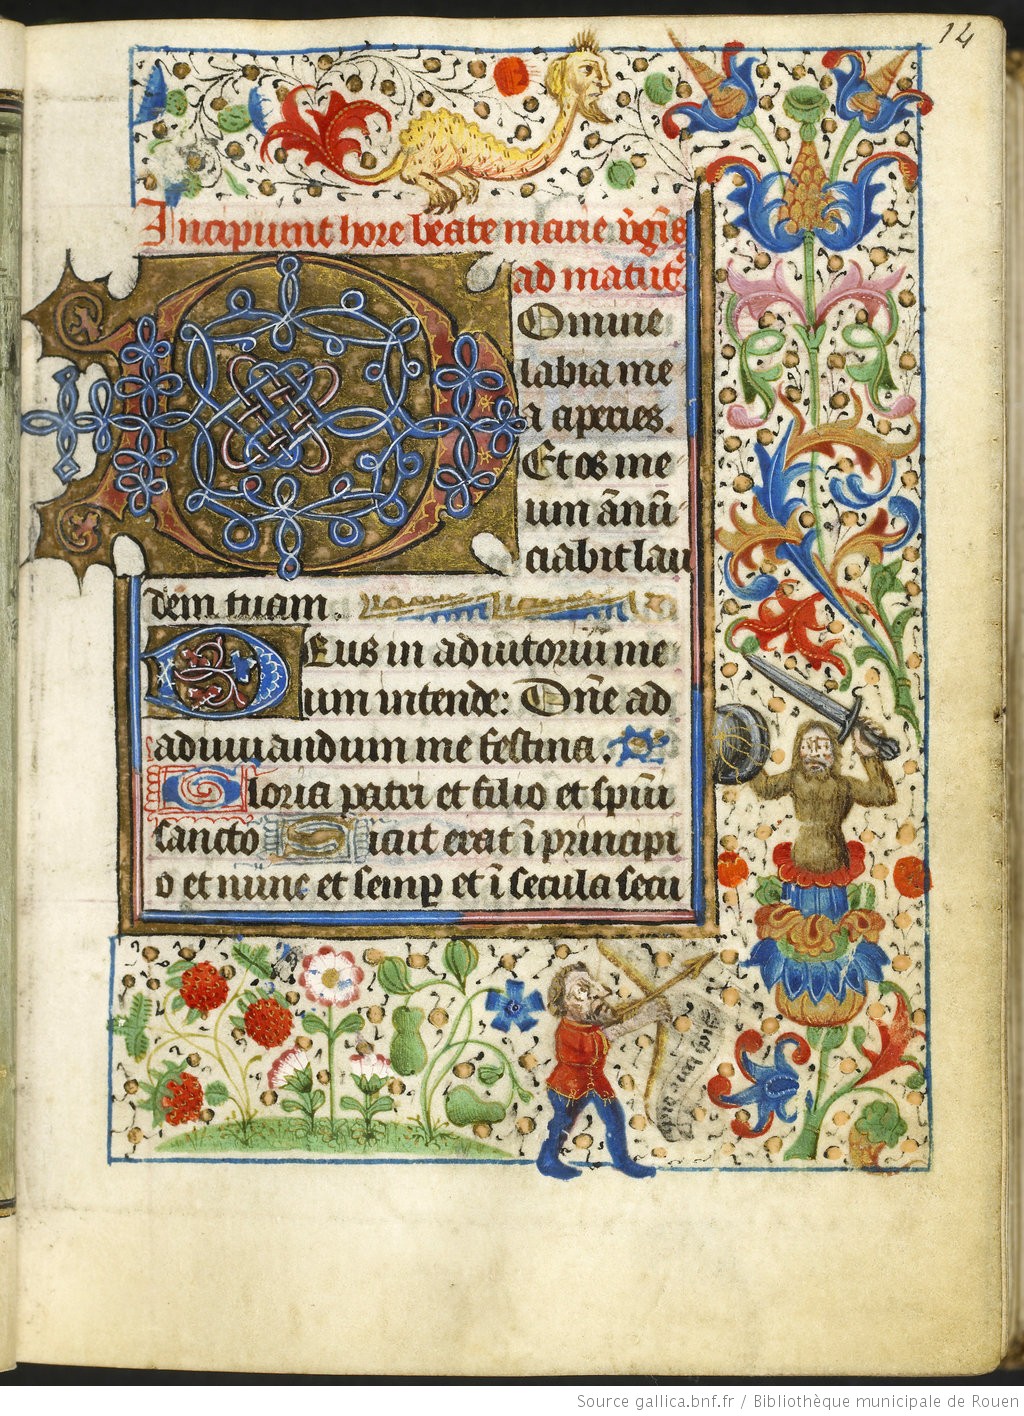 14
Incipiunt hore beate marie v̄gīs
ad matut᷒
Domine
labia me
a aperies.
Et os me
um ānū
ciabit lau
dem tuam.
Deus in adiutoriū me
um intende: Dn̄e ad
adiuuandum me festina.
Gloria patri et filio et spūi
sancto Sicut erat ī principi
o et nunc et semꝑ et ī secula secu
Source gallica.bnf.fr / Bibliothèque municipale de Rouen